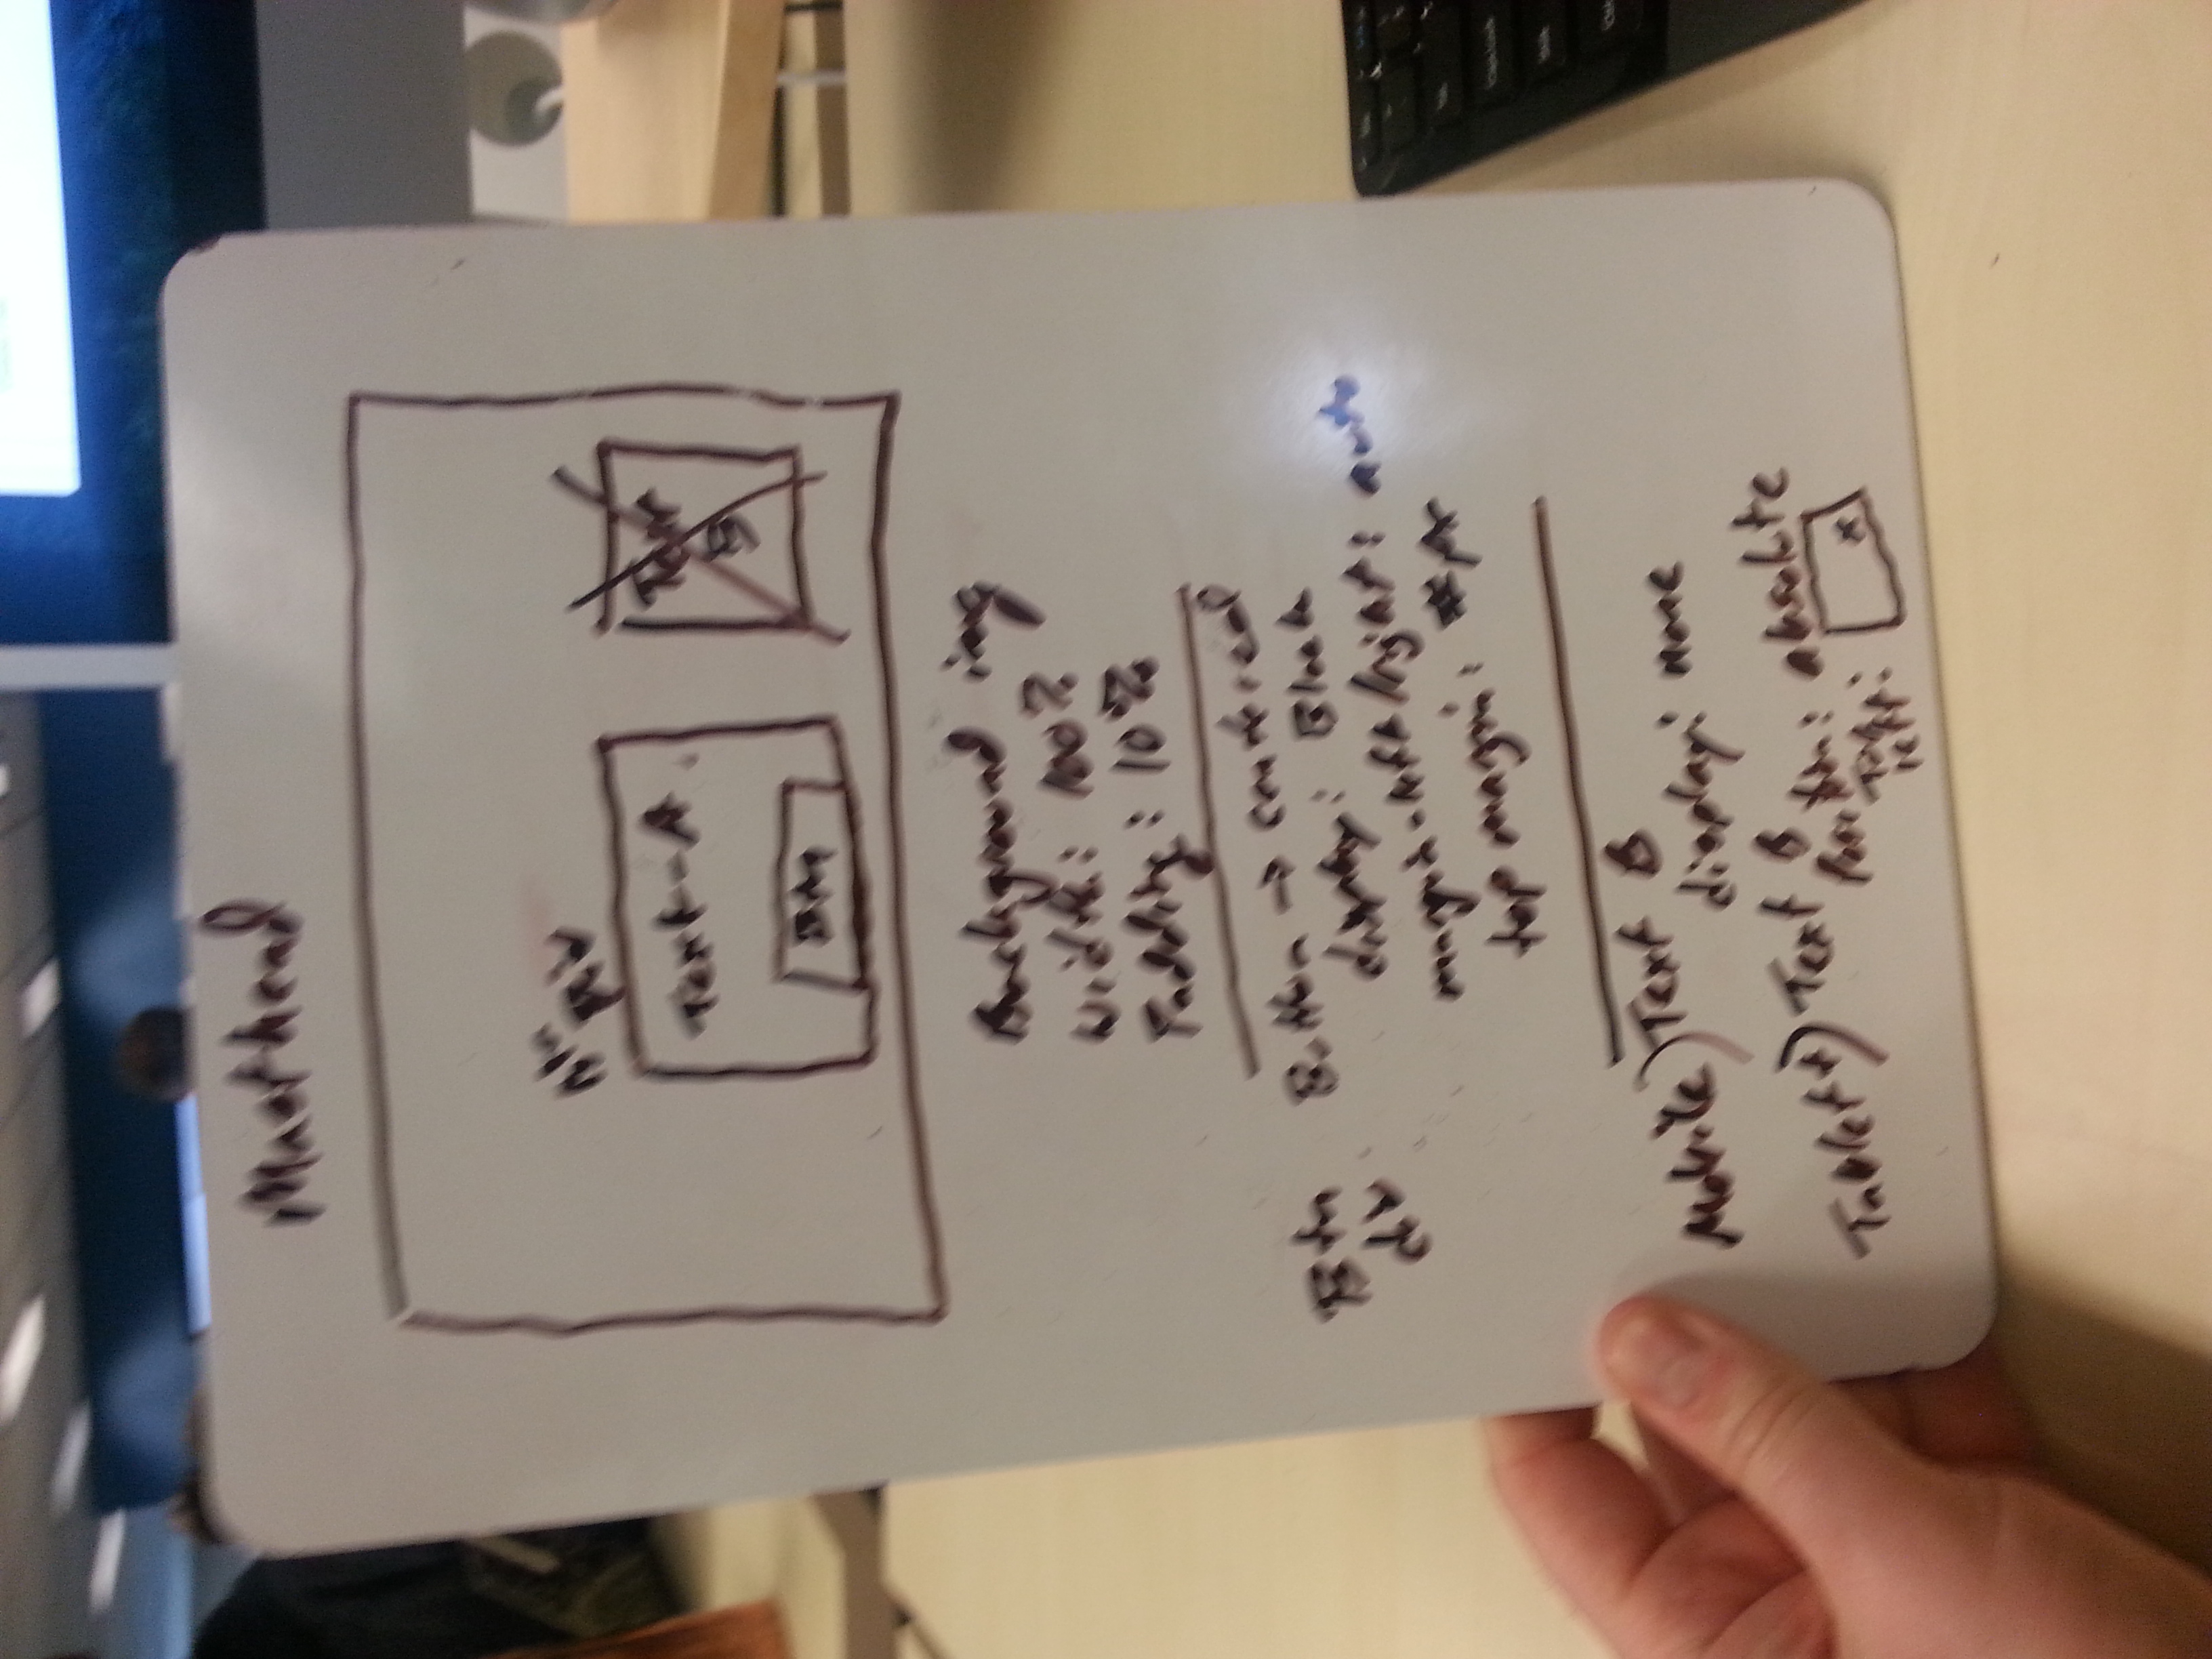 Masthead
Btn
Div
Text-A
Text
B
Btn
Background img
Width: 100%
Padding: 10%
Btn
div
Button → centered
display: Block
margin-left/right: auto
top margin: #px
Mobile) Text B
display: none
Tablet+) Text B
Position: absolute
Top
left:
x